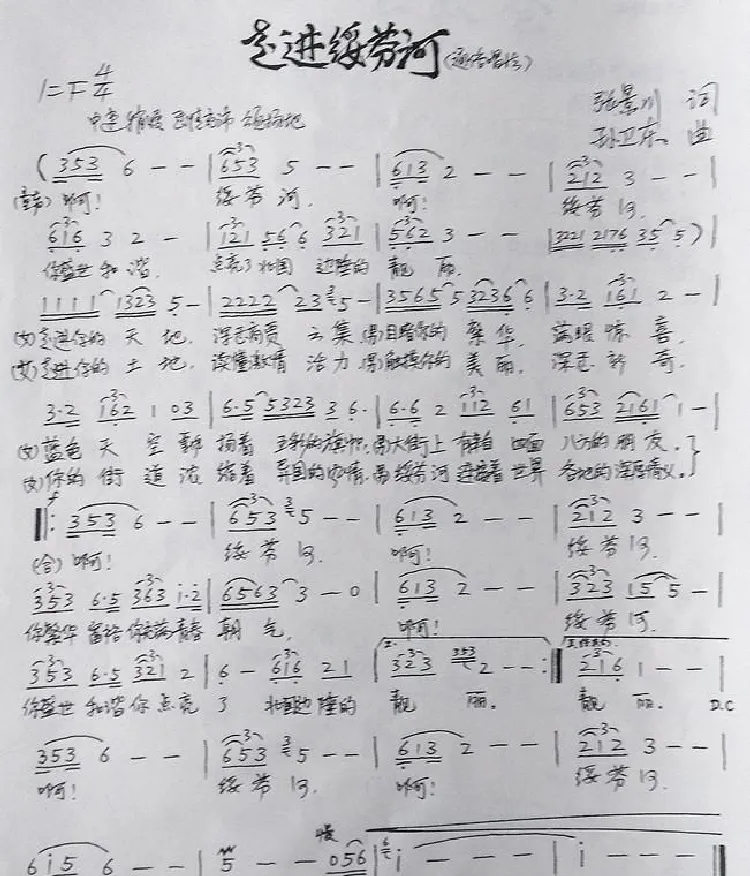 走进绥芬河(通俗唱法)
1=F 4/4
中速 稍慢
张景川 词
孙卫东 曲
(353 6 - - | 653 5 - - | 613 2 - - | 212 3 - - |
啊! 绥芬河. 啊! 绥芬河.
616 3 2 - | 121 56 6 321 | 562 3 - - | 3221 2176 35 5 )
你盛世和谐. 点亮了北国边陲的靓丽.
1111 1323 5 - | 2222 23 5 - | 3565 5 3236 6 | 3·2 161 2 - |
(女)走进你的天地, 深无商贾云集(男)目睹你的繁华, 满眼惊喜.
(女)走进你的土地, 读懂激情活力(男)触摸你的美丽,
3·2 162 1 03 | 6·5 5323 3 6· | 6·6 2 112 61 | 653 2161 1 - |
(女)蓝色天空飘扬着五彩的旗帜,(男)大街上有来自四面八方的朋友.
(女)你的街道浓缩着异国的风情,(男)绥芬河连接着世界各地的深厚情义.
353 6 - - | 653 5 - - | 613 2 - - | 212 3 - - |
(合)啊! 绥芬河. 啊! 绥芬河.
353 6·5 363 i·2 | 6563 3 - 0 | 613 2 - - | 323 15 5 - |
你繁华 青春朝气. 啊! 绥芬河.
353 6·5 321 2 | 6 - 616 21 | 323 353 2 - - :| 216 1 - - |
你盛世和谐你点亮了北国边陲的靓丽. 靓丽. D.C
353 6 - - | 653 5 - - | 613 2 - - | 212 3 - - |
啊! 绥芬河. 啊! 绥芬河.
慢
6i5 6 - - | 5 - - 056 | i - - - | i - - - ||